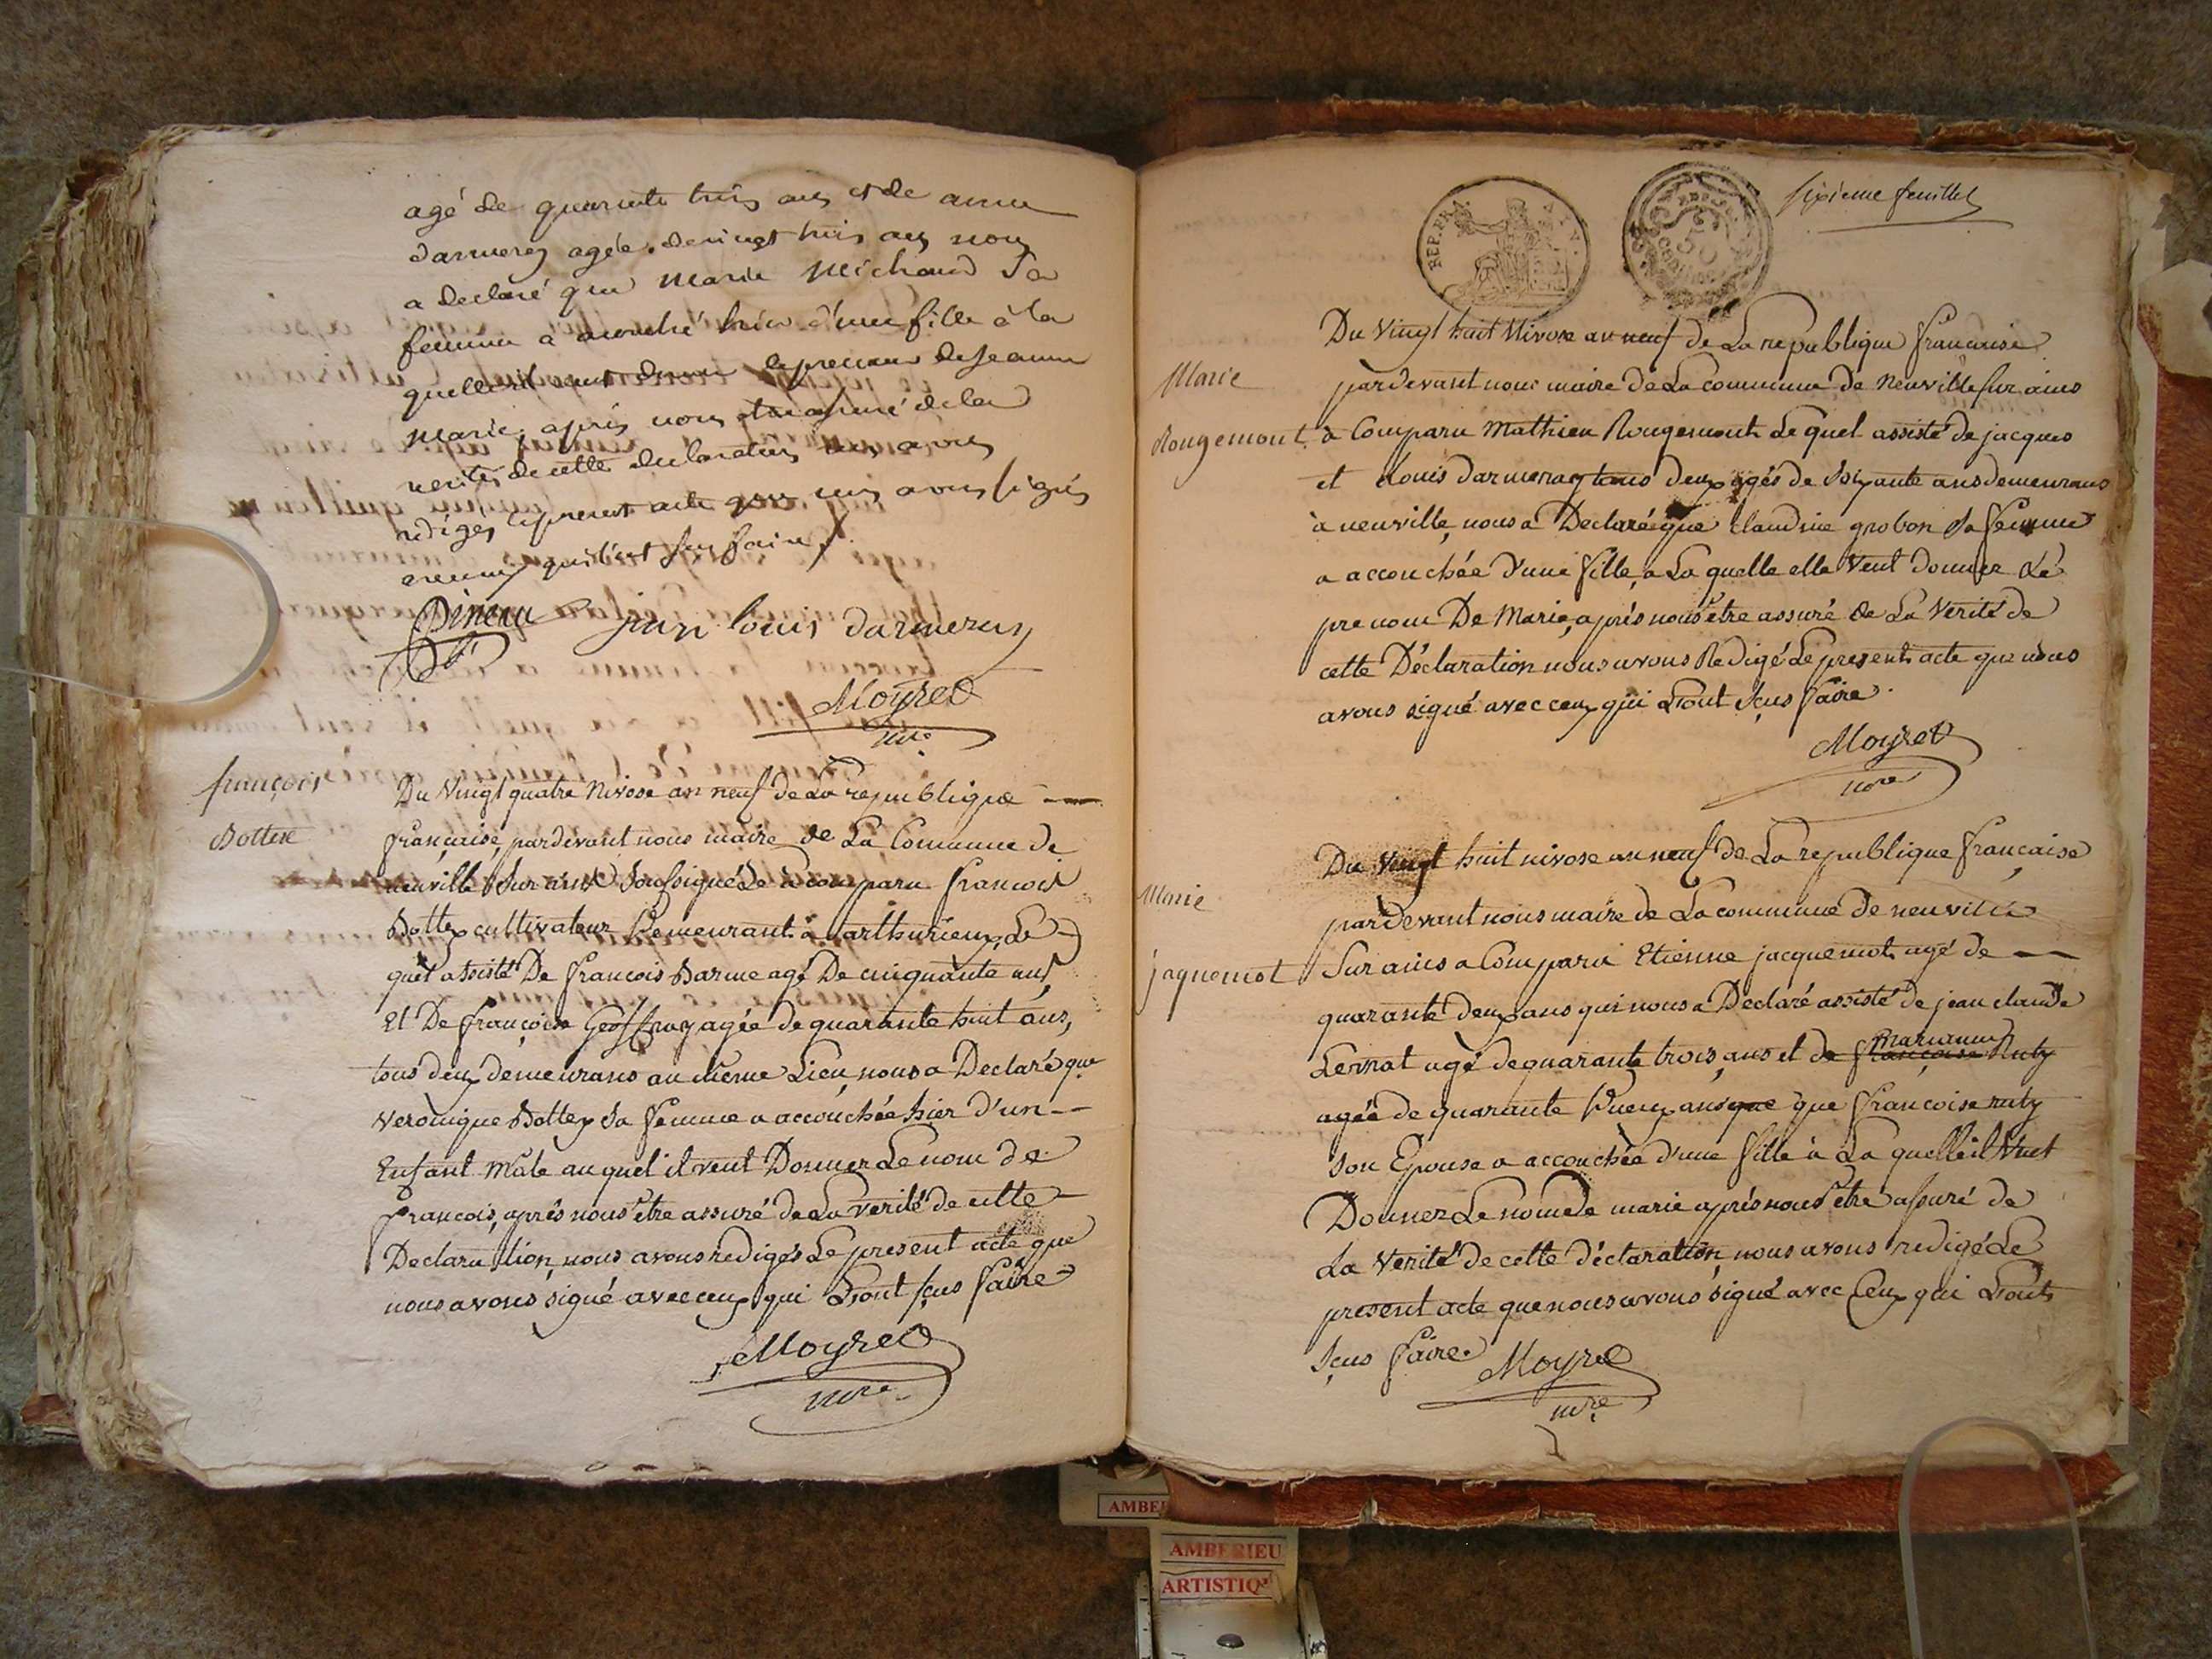 agé de quarante trois ans et de anne
darmeray agée de vingt trois ans nous
a declaré que marie michaud Sa
femme a accouché hier d'une fille à la
quelle il veut donner le prenom de jeanne
marie, apres nous etre assuré de la
verité de cette declaration nous avons
rediges le present acte que nous avons signés
avec ceux qui l'ont seu faire.
jean louis darmeray
Moyret
mre
françois
Bottex
Du Vingt quatre Nivose an neuf de La republique
française, pardevant nous maire de La Commune de
neuville Sur ains Soussigné a comparu francois
Bottex cultivateur Demeurant à Tarthurieux, Le
quel assisté De francois Darme agé De cinquante ans,
Et De françoise Geoffray agée de quarante huit ans,
tous deux demeurans au même Lieu, nous a Declaré que
veronique Bottex Sa femme a accouchée hier d'un
Enfant Male auquel il veut Donner Le nom de
francois, après nous être assuré de La verité de cette
Declaration, nous avons redigés Le present acte que
nous avons signé avec ceux qui L'ont sçus faire
Moyret
mre
REP. FRA
sixieme feuillet
Marie
Rougemont
Du Vingt huit Nivose an neuf de La republique francaise
pardevant nous maire de La commune de Neuville sur ains
a Comparu Mathieu Rougemont Le quel assisté de jacques
et Louis darmeray tous deux agés de Soixante ans demeurans
à neuville, nous a Declaré que Claudine grobon Sa femme
a accouchée d'une fille, a La quelle elle veut donner Le
prenom De Marie, après nous être assuré de La Verité de
cette Déclaration nous avons Redigé Le present acte que nous
avons signé avec ceux qui L'ont sçus faire.
Moyret
mre
Marie
jaquemot
Du Vingt huit nivose an neuf de La republique française
pardevant nous maire de La commune de neuville
Sur ains a Comparu Etienne jacquemot agé de
quarante deux ans qui nous a Declaré assisté de jean claude
Lernat agé de quarante trois ans et de françoise marianne Ruty
agée de quarante Deux ans que que françoise ruty
son Epouse a accouchée d'une fille à La quelle il veut
Donner Le nom de marie après nous être assuré de
La Verité de cette déclaration, nous avons redigé Le
present acte que nous avons signé avec Ceux qui L'ont
sçus faire.
Moyret
mre
AMBERIEU
ARTISTIQ